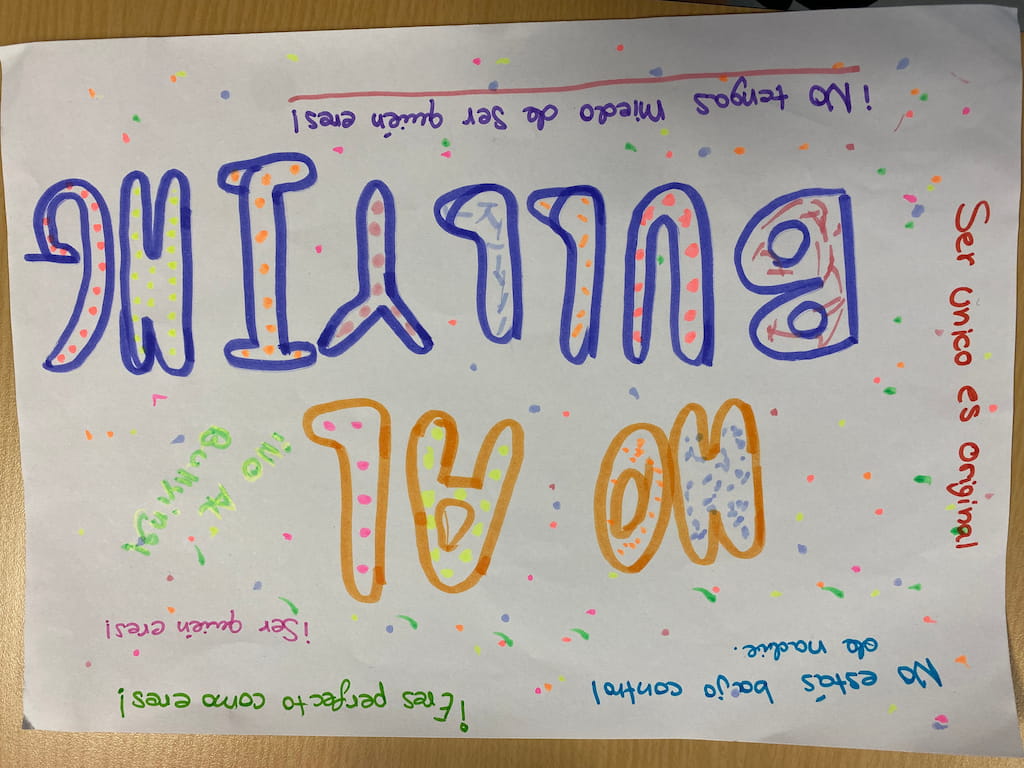 No estás bajo control
de nadie.
¡Eres perfecto como eres!
¡Ser quién eres!
NO AL
BULLYING
¡NO
AL
Bullying!
Ser unico es original
¡No tengas miedo de ser quién eres!